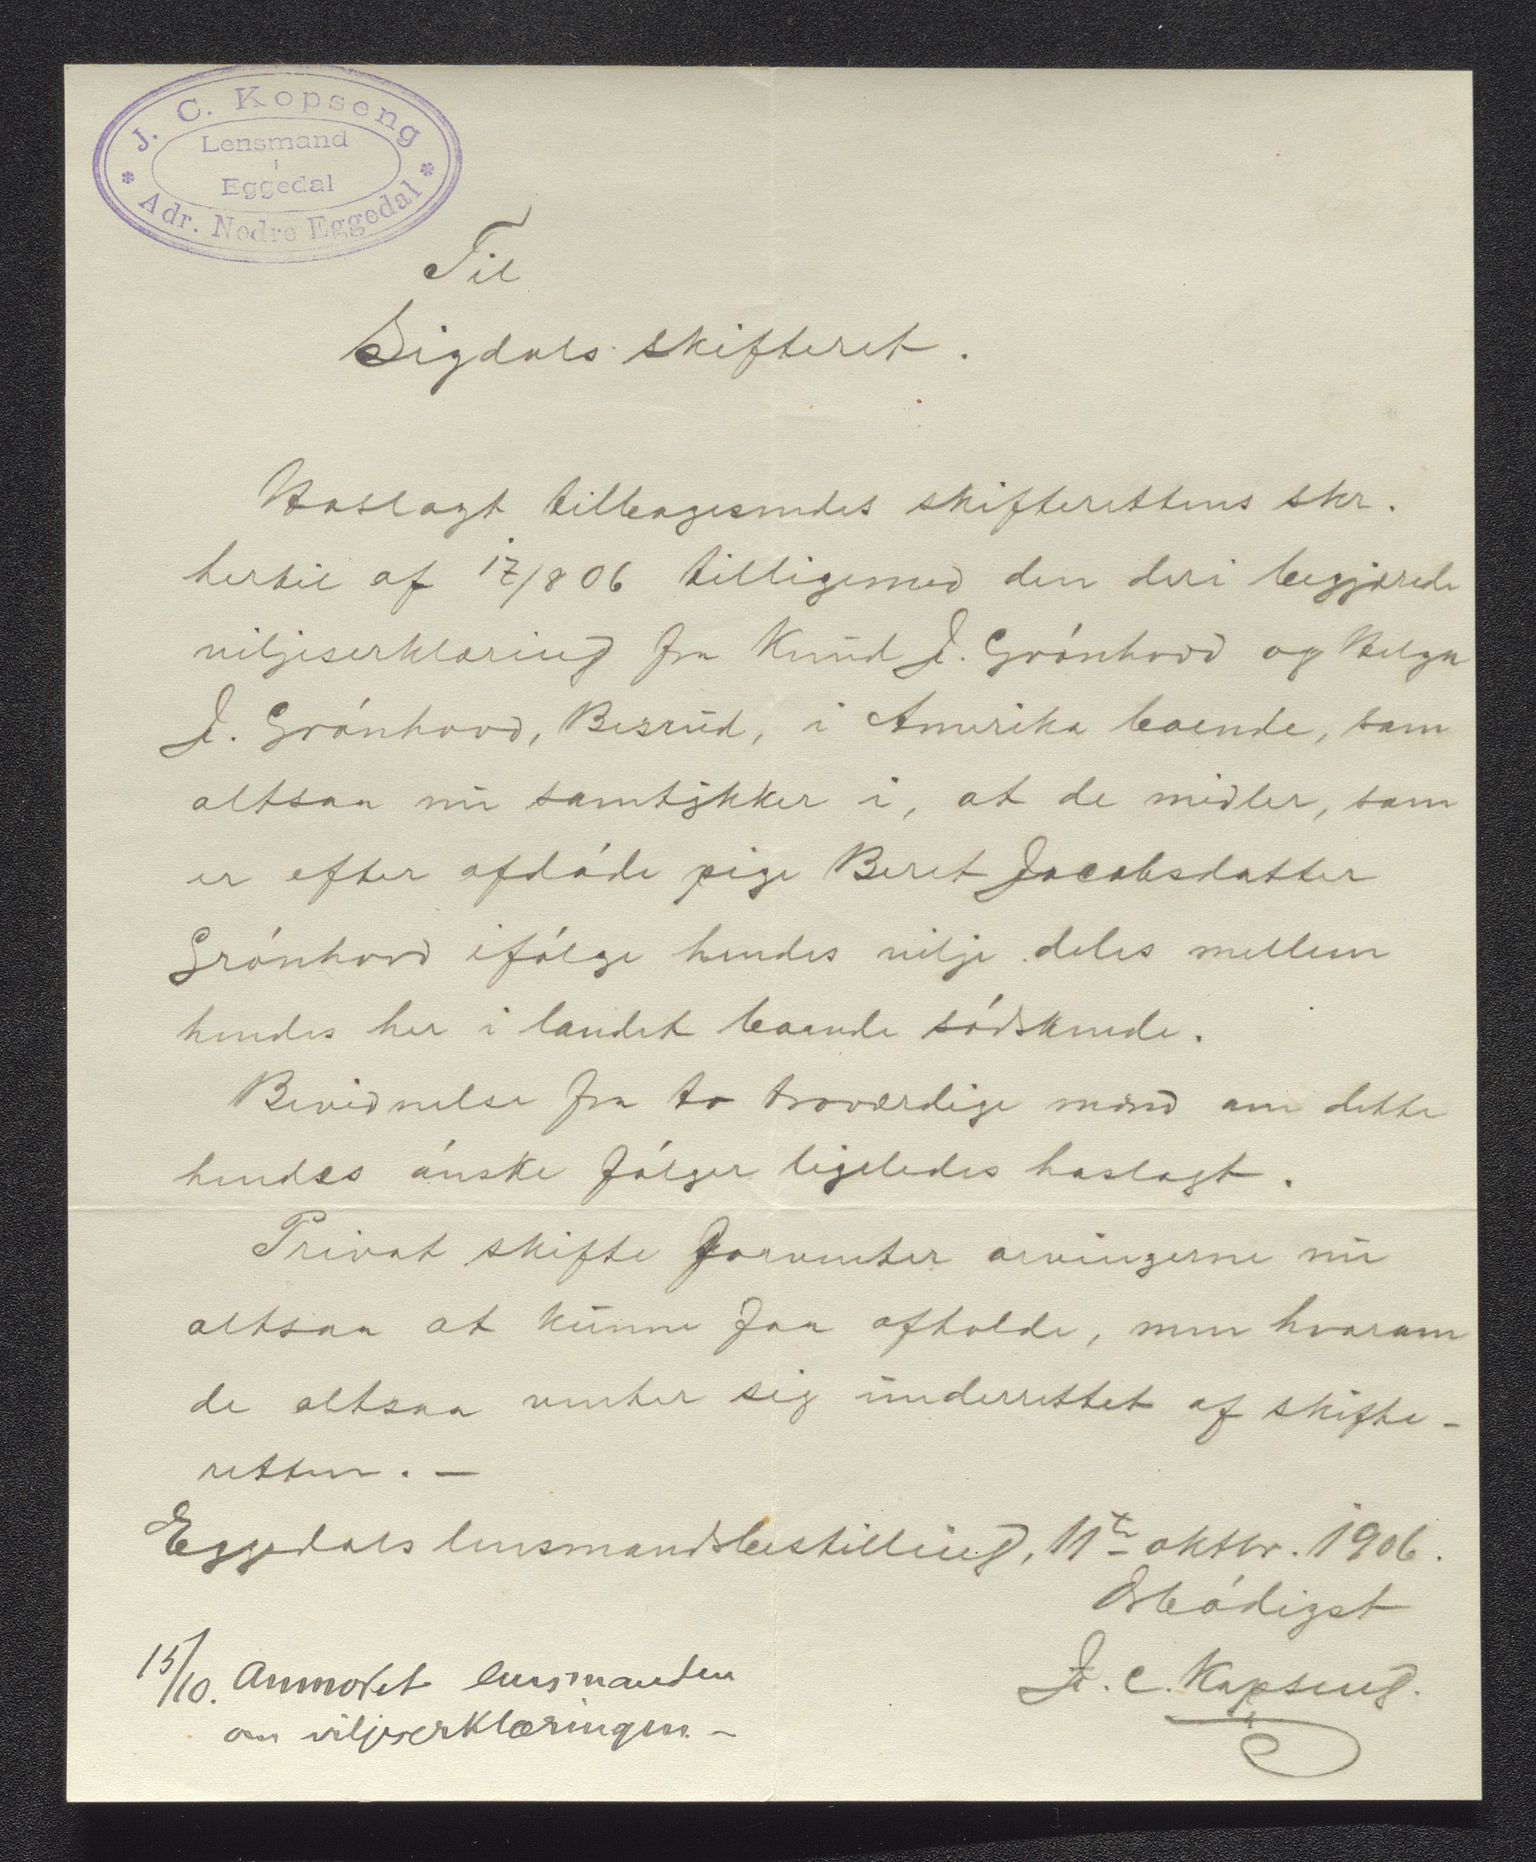 J. C. Kopseng
Lensmand
i
Eggedal
Adr. Nedre Eggedal
Til
Sigdals skifteret.
Vedlagt tilbagesendes skifterettens skr.
hertil af 17/8 06 tilligemed den deri begjærede
viljeserklæring fra Knud J. Grónhovd og Helga
J. Grónhovd, Besrud, i Amerika boende, som
altsaa nu samtykker i, at de midler, som
er efter afdóde pige Beret Jacobsdatter
Grónhovd ifólge hendes vilje deles mellem
hendes her i landet boende sódskende.
Bevidnelse fra to troværdige mænd om dette
hendes ónske fólger ligeledes haslagt.
Privat skifte forventer arvingerne nu
altsaa at kunne faa afholde, men hvorom
de altsaa venter sig underrettet af skifte-
retten. —
Eggedals lensmandsbestilling, 11te oktbr. 1906.
Ærbódigst
J. C. Kopseng.
15/10. Anmodet lensmanden
om viljeserklæringen. —